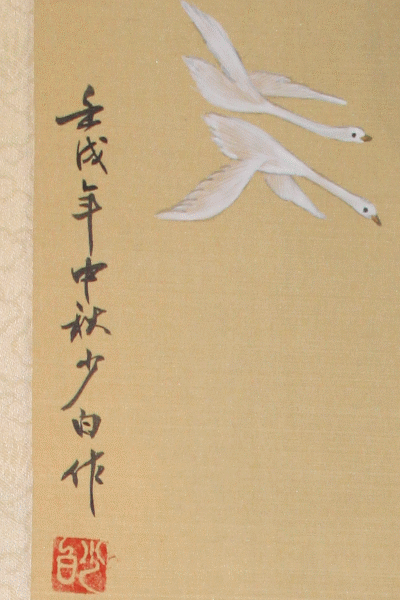 壬戌年中秋少白作
少白